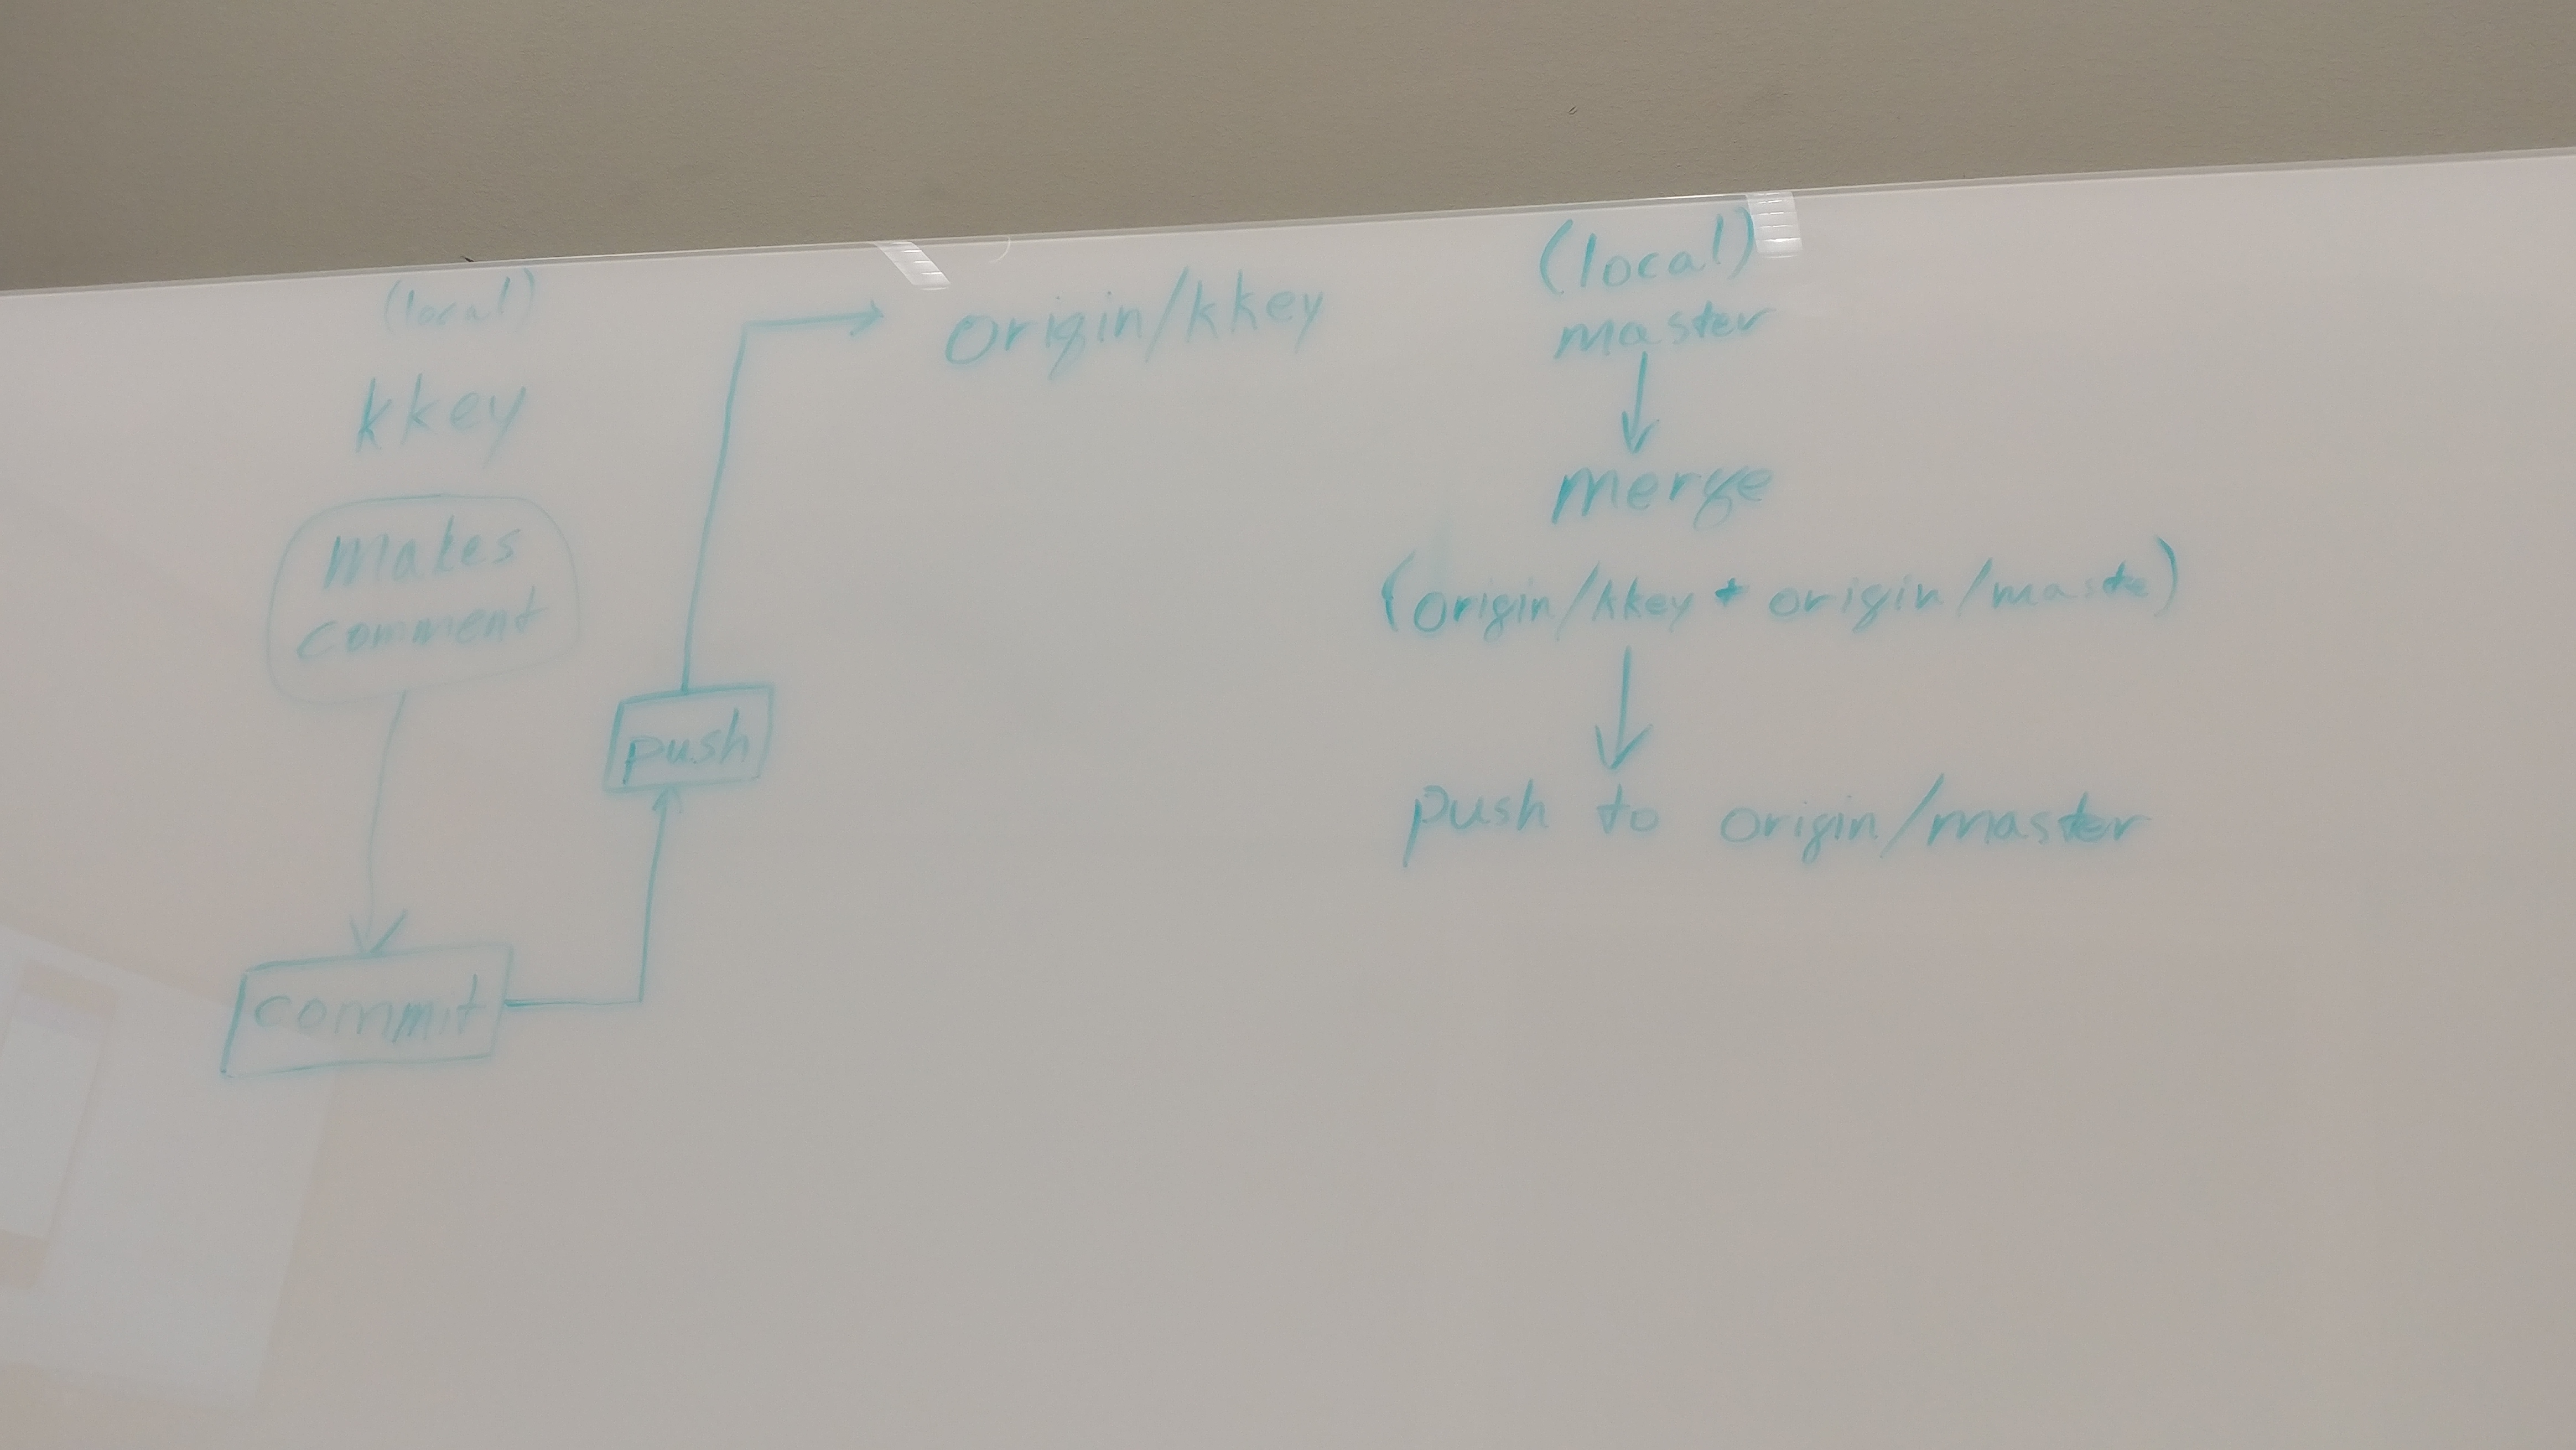 (local)
kkey
Makes
comment
commit
push
origin/kkey
(local)
master
merge
(origin/kkey + origin/maste)
push to origin/master